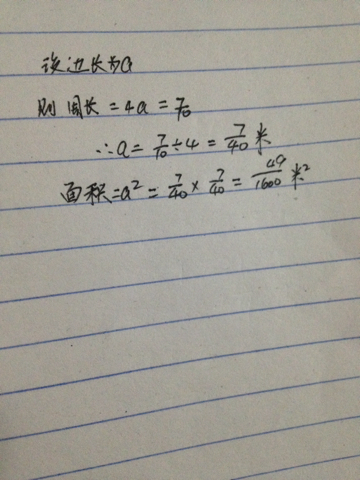 设边长为a
则周长=4a=7/10
∴a=7/10÷4=7/40米
面积=a²=7/40×7/40=49/1600米²